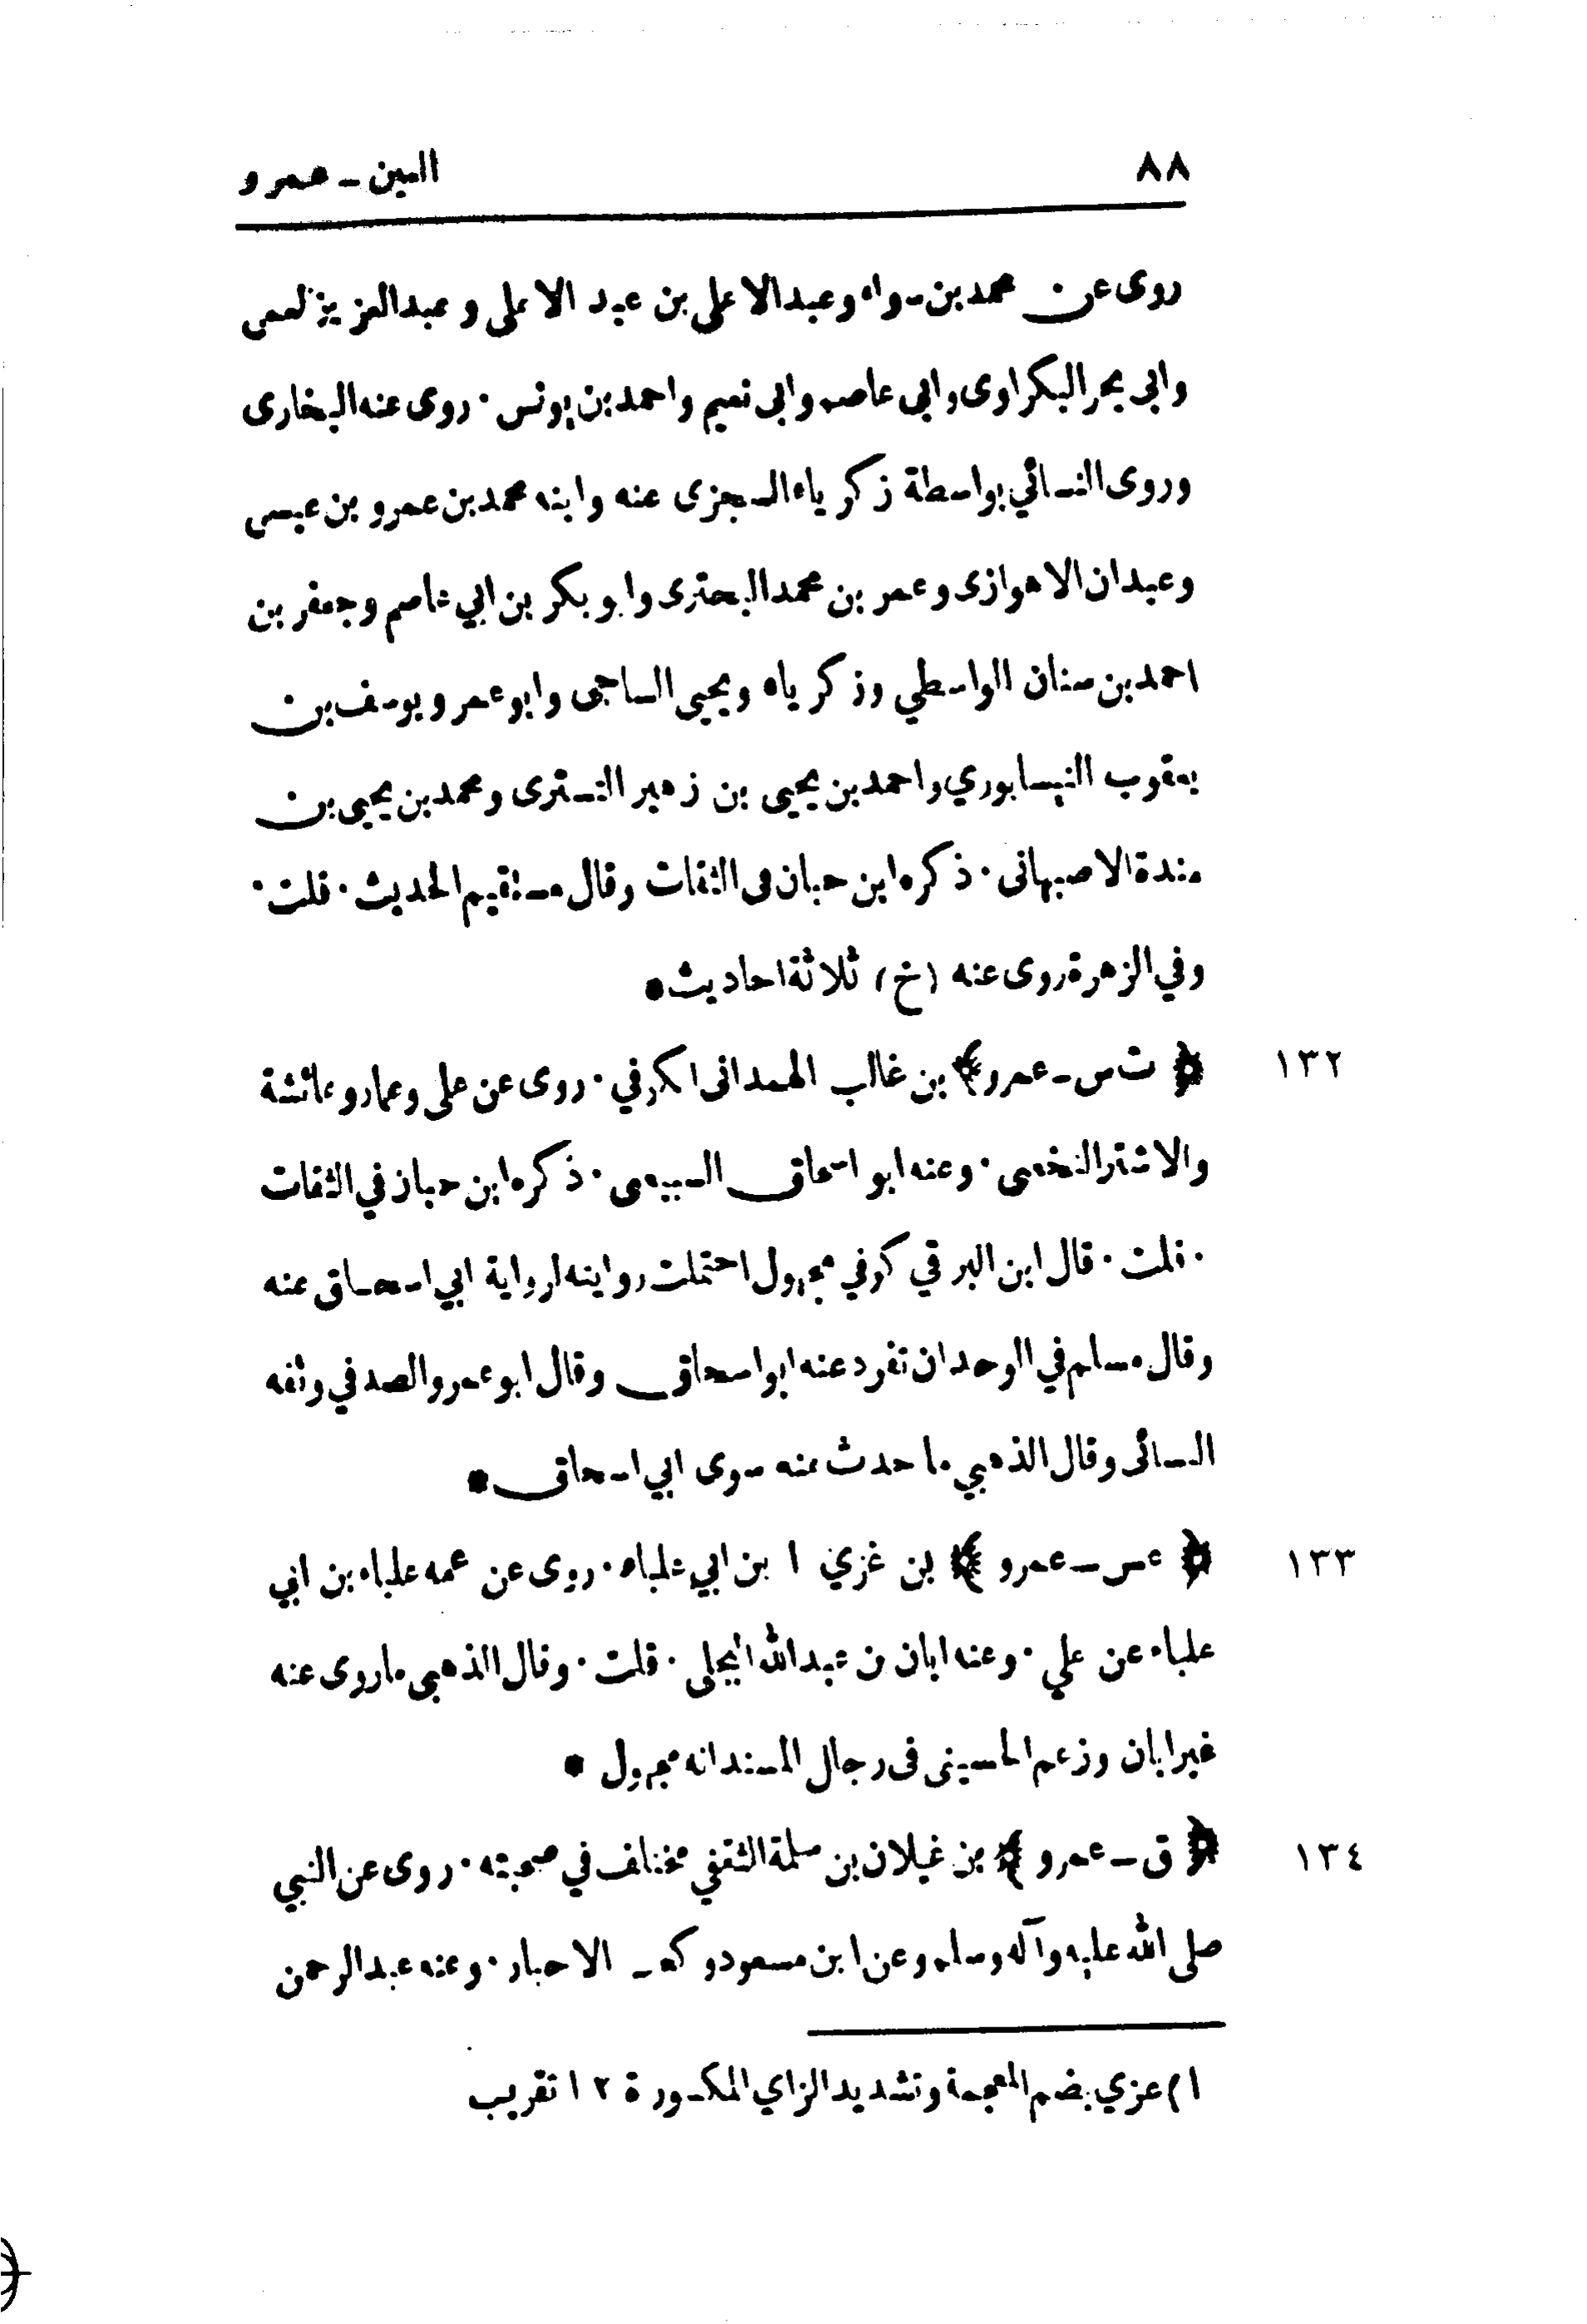 ٨٨
العين - عمرو
روى عن محمد بن سواء وعبد الاعلى بن عبد الاعلى وعبد العزيز العمى
وابي بحر البكراوى وابي عاصم وابي نعيم واحمد بن يونس · روى عنه البخارى
وروى النسائي بواسطة زكرياء السجزى عنه وابنه محمد بن عمرو بن عيسى
وعبدان الاهوازى وعمر بن محمد البحترى وابو بكر بن ابي عاصم وجعفر بن
احمد بن سنان الواسطي وزكرياء ويحيى الساجى وابو عمرو يوسف بن
يعقوب النيسابوري واحمد بن يحيى بن زهير التسترى ومحمد بن يحيى بن
مندة الاصبهانى · ذكره ابن حبان فى الثقات وقال مستقيم الحديث · قلت ·
وفي الزهرة روى عنه (خ) ثلاثة احاديث *
١٣٢
﴿ ت س - عمرو ﴾ بن غالب الهمدانى الكوفي · روى عن على وعمار وعائشة
والاشتر النخعى · وعنه ابو اسحاق السبيعى · ذكره ابن حبان في الثقات
· قلت · قال ابن البرقي كوفي مجهول احتملت روايته لرواية ابي اسحاق عنه
وقال مسلم في الوحدان تفرد عنه ابو اسحاق وقال ابو عمرو الصدفي وثقه
النسائى وقال الذهبي ما حدث عنه سوى ابي اسحاق *
١٣٣
﴿ عس - عمرو ﴾ بن غزي ١ بن ابي علباء · روى عن عمه علباء بن ابي
علباء عن علي · وعنه ابان بن عبد الله البجلى · قلت · وقال الذهبى ما روى عنه
غير ابان وزعم الحسينى فى رجال المسند انه مجهول *
١٣٤
﴿ ق - عمرو ﴾ بن غيلان بن سلمة الثقفي مختلف في صحبته · روى عن النبي
صلى الله عليه وآله وسلم وعن ابن مسعود وكعب الاحبار · وعنه عبد الرحمن
١) عزي بضم المعجمة وتشديد الزاي المكسورة ١٢ تقريب